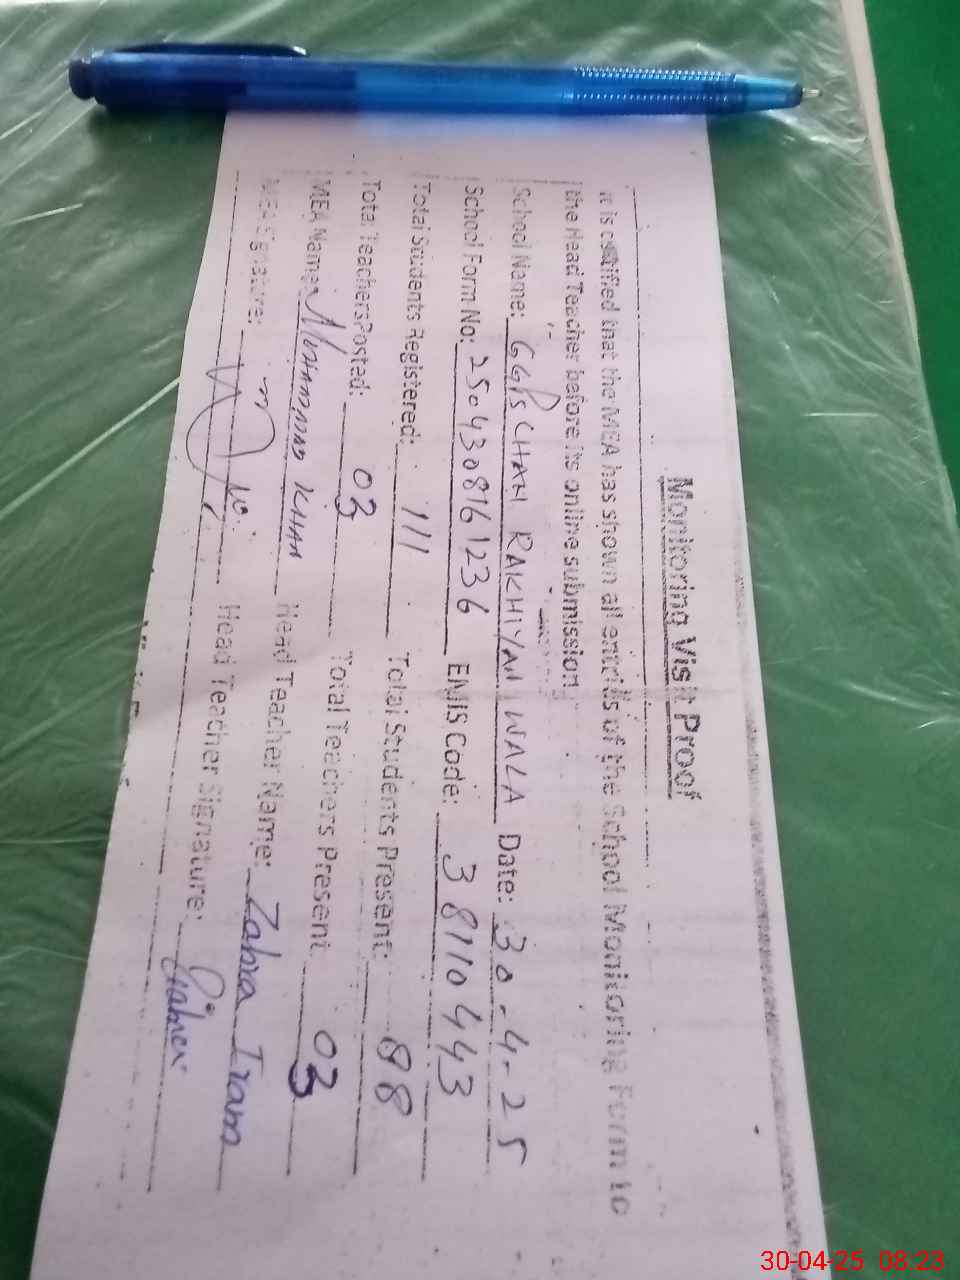 Monitoring Visit Proof
It is certified that the MEA has shown all entries of the School Monitoring Form to
the Head Teacher before its online submission
School Name: GGPS CHAH RAKHIYAN WALA Date: 30-4-25
School Form No: 2504308161236 EMIS Code: 38110443
Total Students Registered: 111 Total Students Present: 88
Total Teachers Posted: 03 Total Teachers Present 03
MEA Name: Muhammad Khan Head Teacher Name: Zahra Iram
MEA Signature: Head Teacher Signature:
30-04-25 08:23